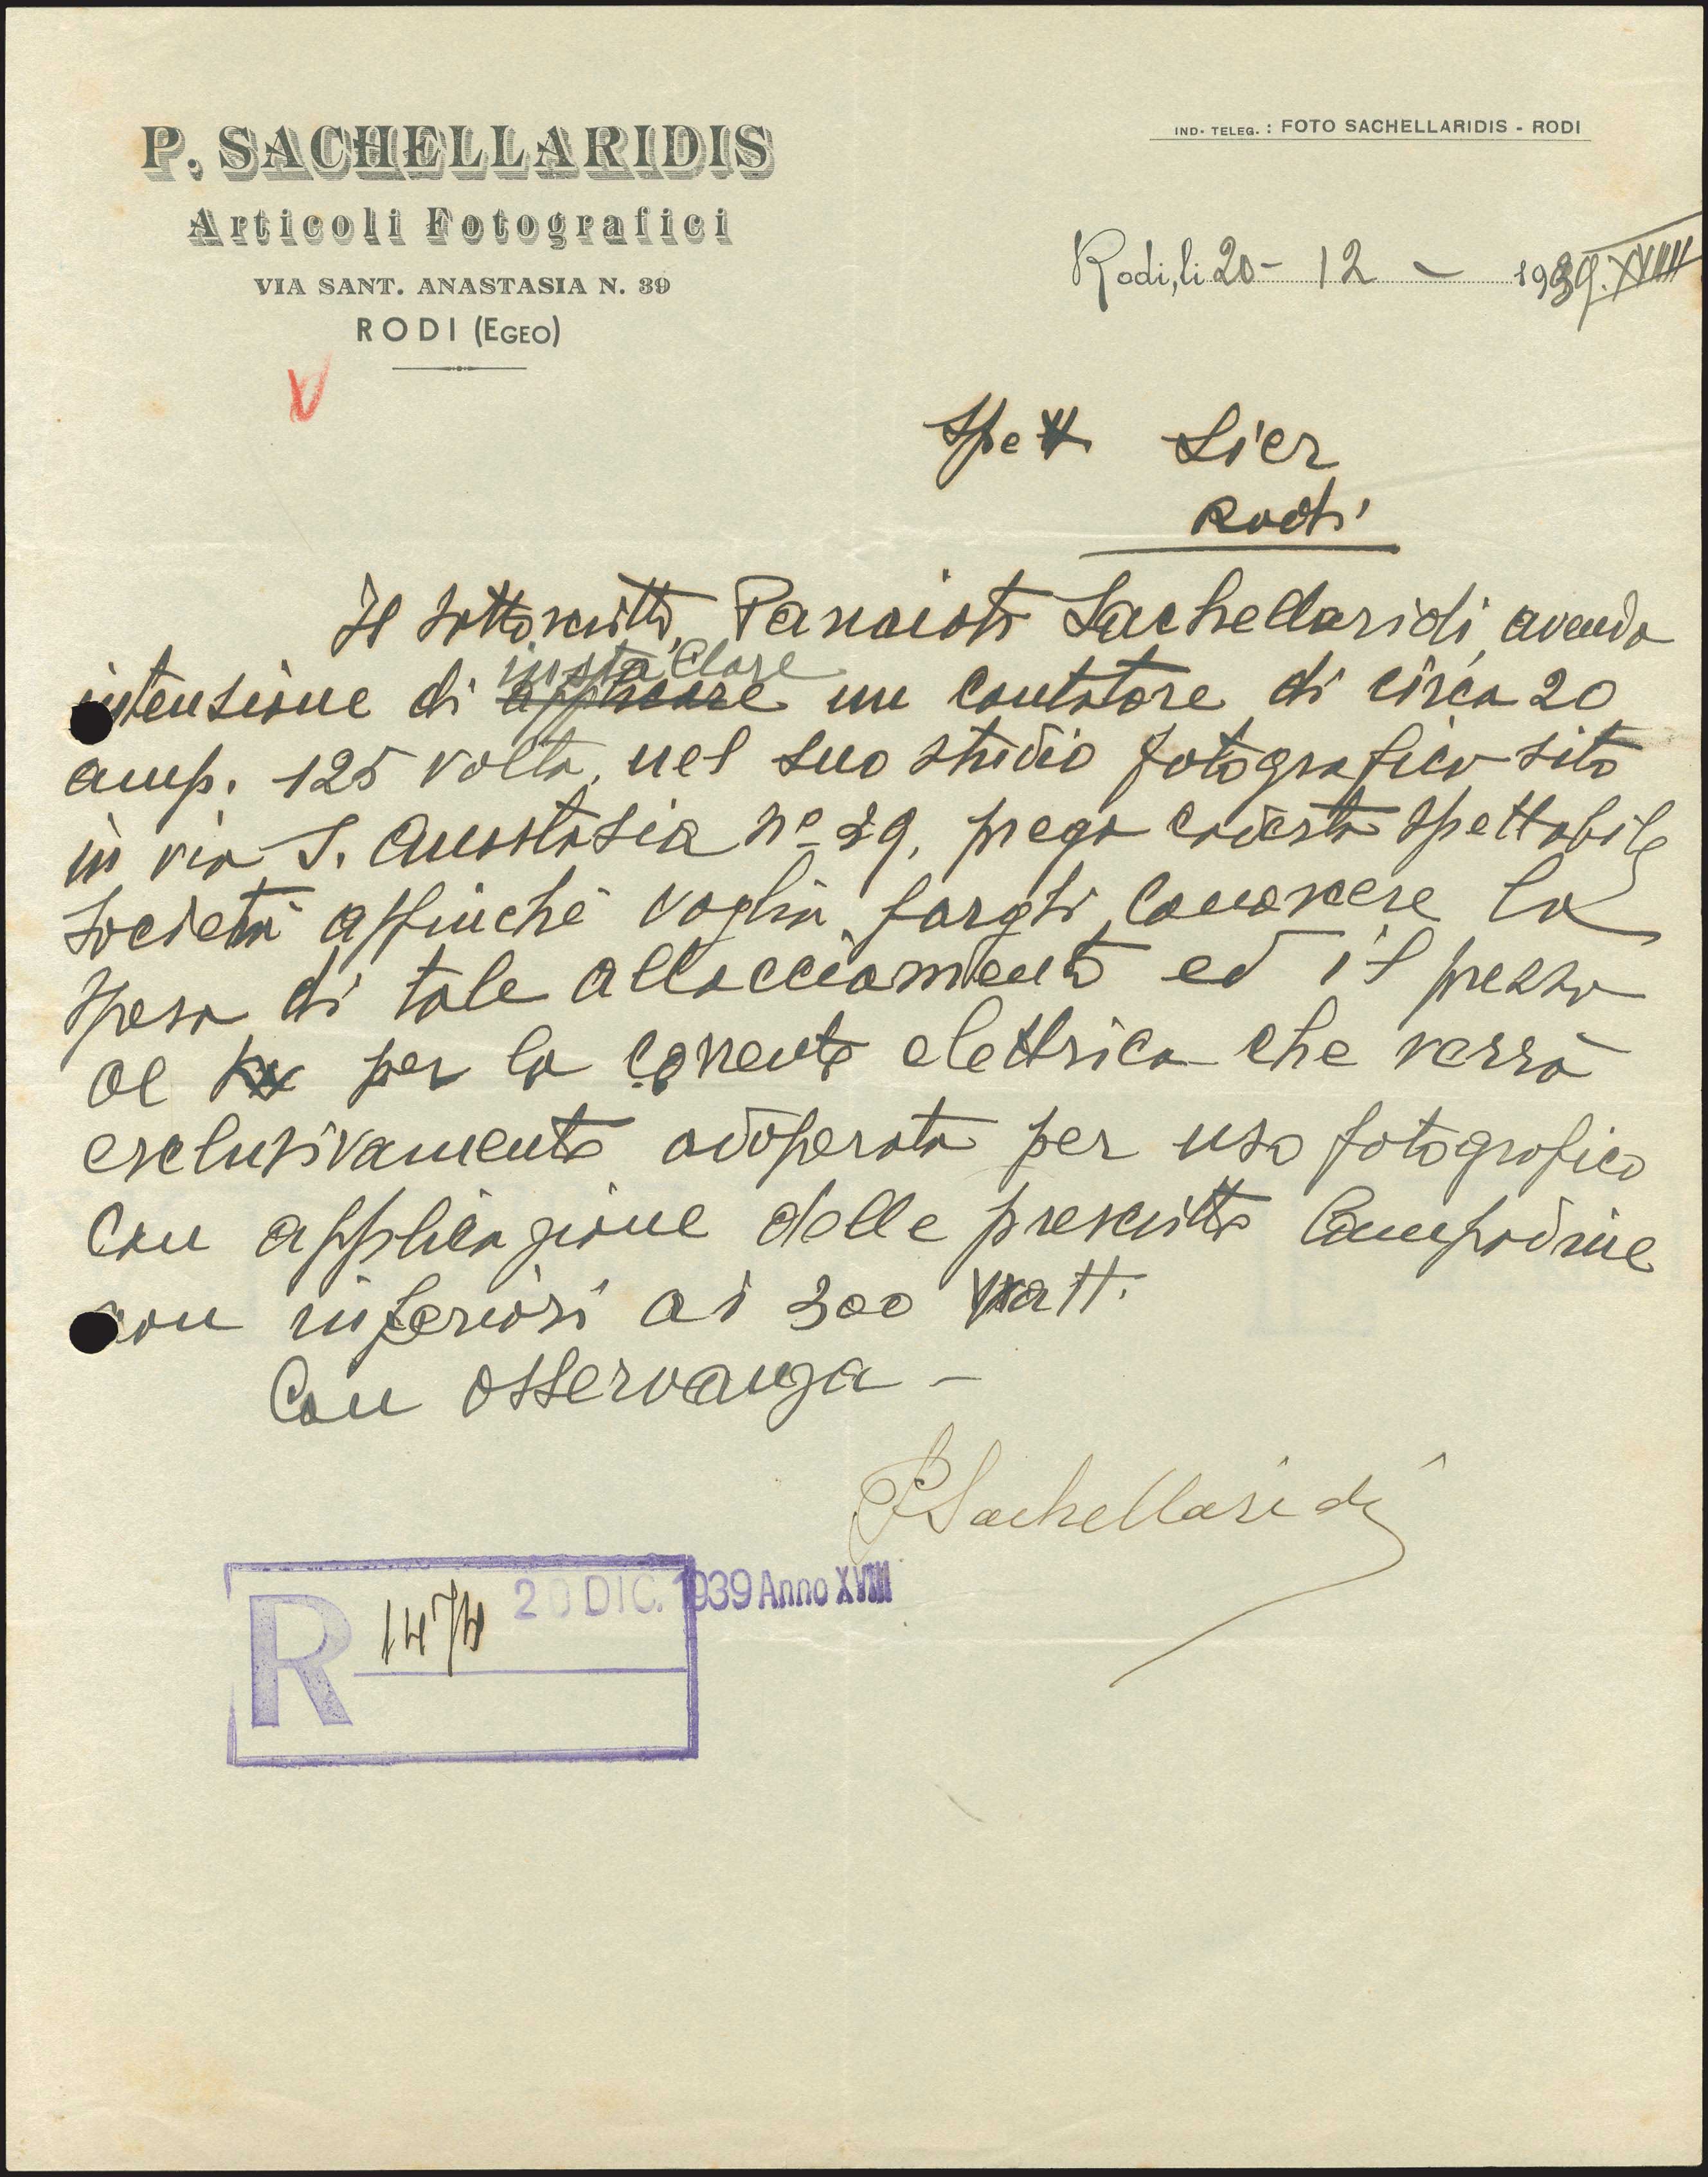 P. SACHELLARIDIS
Articoli Fotografici
VIA SANT. ANASTASIA N. 39
RODI (EGEO)
IND. TELEG. : FOTO SACHELLARIDIS - RODI
Rodi, li 20 - 12 - 1939. XVIII
V
Spett Sier
Rodi
Il sottoscritto, Panaioti Sachellaridi, avendo
installare
intensione di applicare un contatore di circa 20
amp. 125 volta, nel suo studio fotografico sito
in via S. Anastasia nº 39, prega codesta spettabile
società affinché voglia fargli conoscere la
spesa di tale allacciamento ed il prezzo
al kw per la corrente elettrica che verrà
esclusivamente adoperata per uso fotografico
con applicazione delle prescritte lampadine
non inferiori ai 300 watt.
Con osservanza -
P Sachellaridi
R 1474 20 DIC. 1939 Anno XVIII